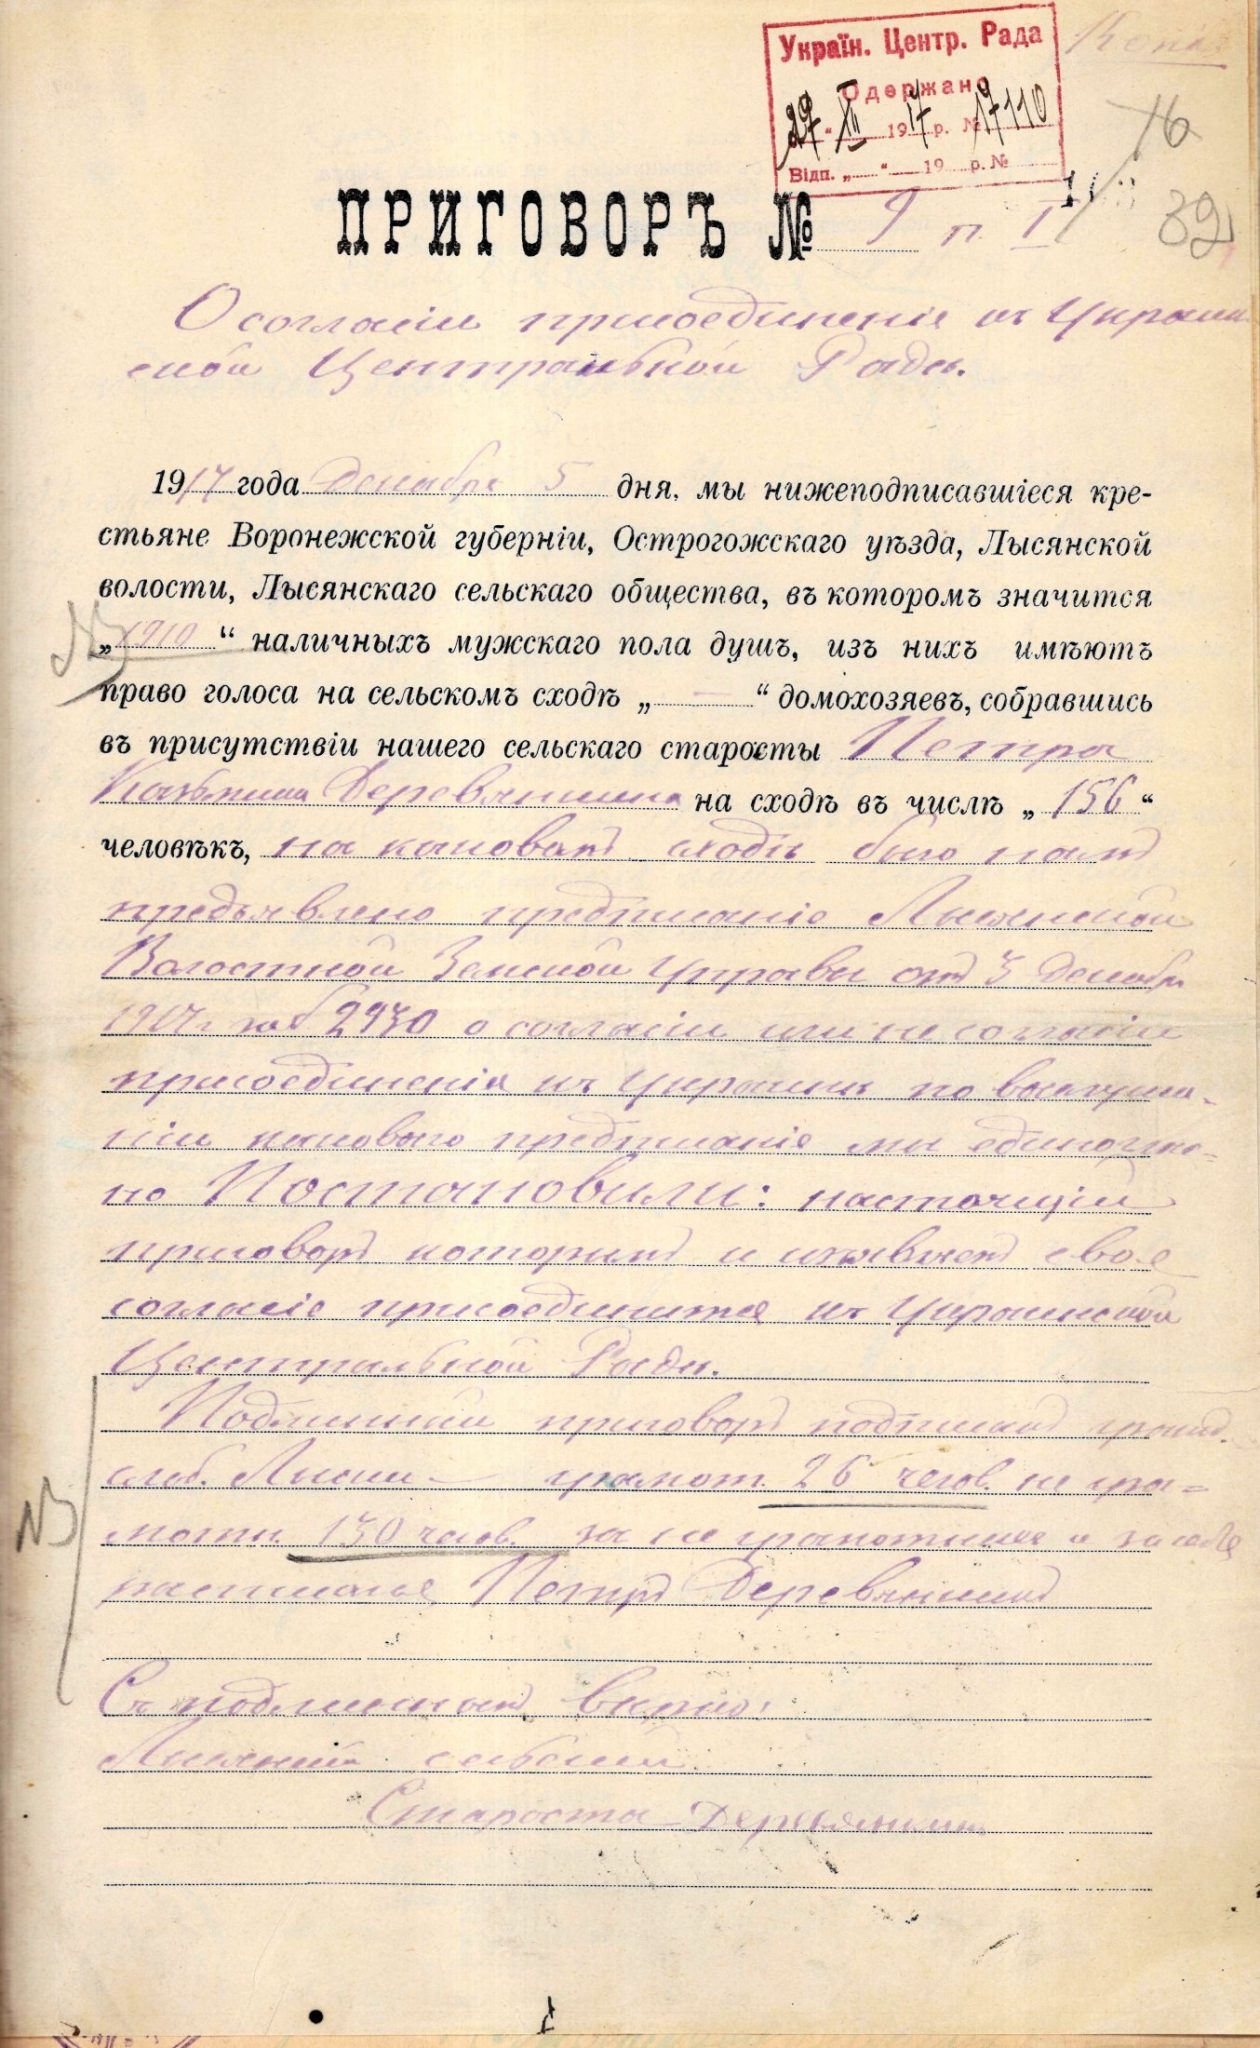 Україн. Центр. Рада
Копія
Одержано
29 " XII 1917 р. № 17110
Відп. „ “ 19 р. №
76
39
ПРИГОВОРЪ № 9 п. I
О согласіи присоединенія къ Украин
ской Центральной Рады.
1917 года Декабря 5 дня, мы нижеподписавшіеся кре-
стьяне Воронежской губерніи, Острогожскаго уѣзда, Лысянской
волости, Лысянскаго сельскаго общества, въ которомъ значится
„1910“ наличныхъ мужскаго пола душъ, изъ нихъ имѣютъ
право голоса на сельскомъ сходѣ „—“ домохозяевъ, собравшись
въ присутствіи нашего сельскаго старосты Петра
Деревянкина на сходѣ въ числѣ „156“
человѣкъ, на каковомъ сходѣ было намъ
предъявлено предписаніе Лысянской
Волостной Земской Управы отъ 3 декабря
1917 г за № 2930 о согласіи или не согласіи
присоединенія къ Украины по выслуша-
ніи каковаго предписанія мы единоглас-
но Постановили: настоящій
приговоръ которымъ и изъявляемъ свое
согласіе присоединится къ Украинской
Центральной Рады.
Подлинный приговоръ подписали гражд.
слоб. Лысянки — грамот. 26 челов. не гра-
мотн. 130 челов. за не грамотныхъ и за себя
росписался Петръ Деревянкинъ
NB
NB
Съ подлиннымъ вѣрно:
Лысянскій сельскій
Староста Деревянкинъ